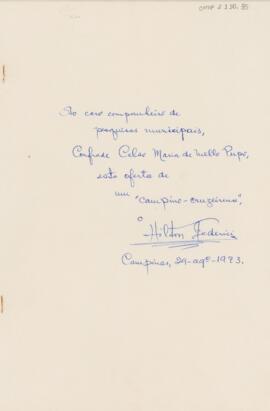 CMMP 2.1.30.95
Ao caro companheiro de
pesquisas municipais,
Confrade Celso Maria de Mello Pupo,
esta oferta de
um "campino-cruzeirense",
o
Hilton Federici
Campinas, 29-agº-1973.